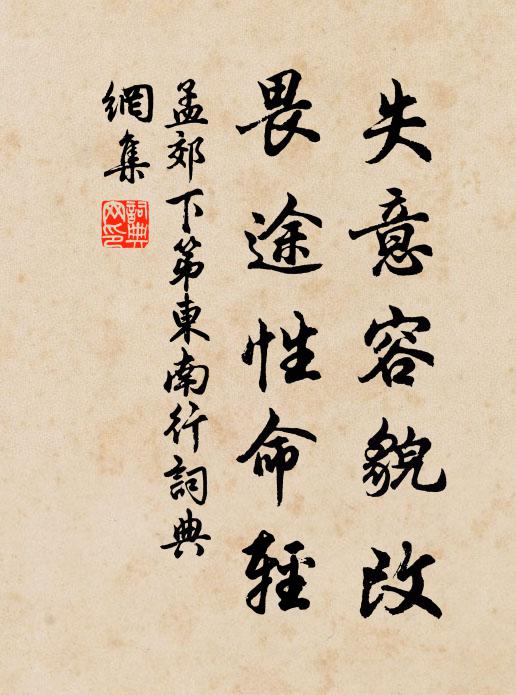 失意容貌改
畏途性命輕
孟郊下第東南行詞典
網集
詞典
网印